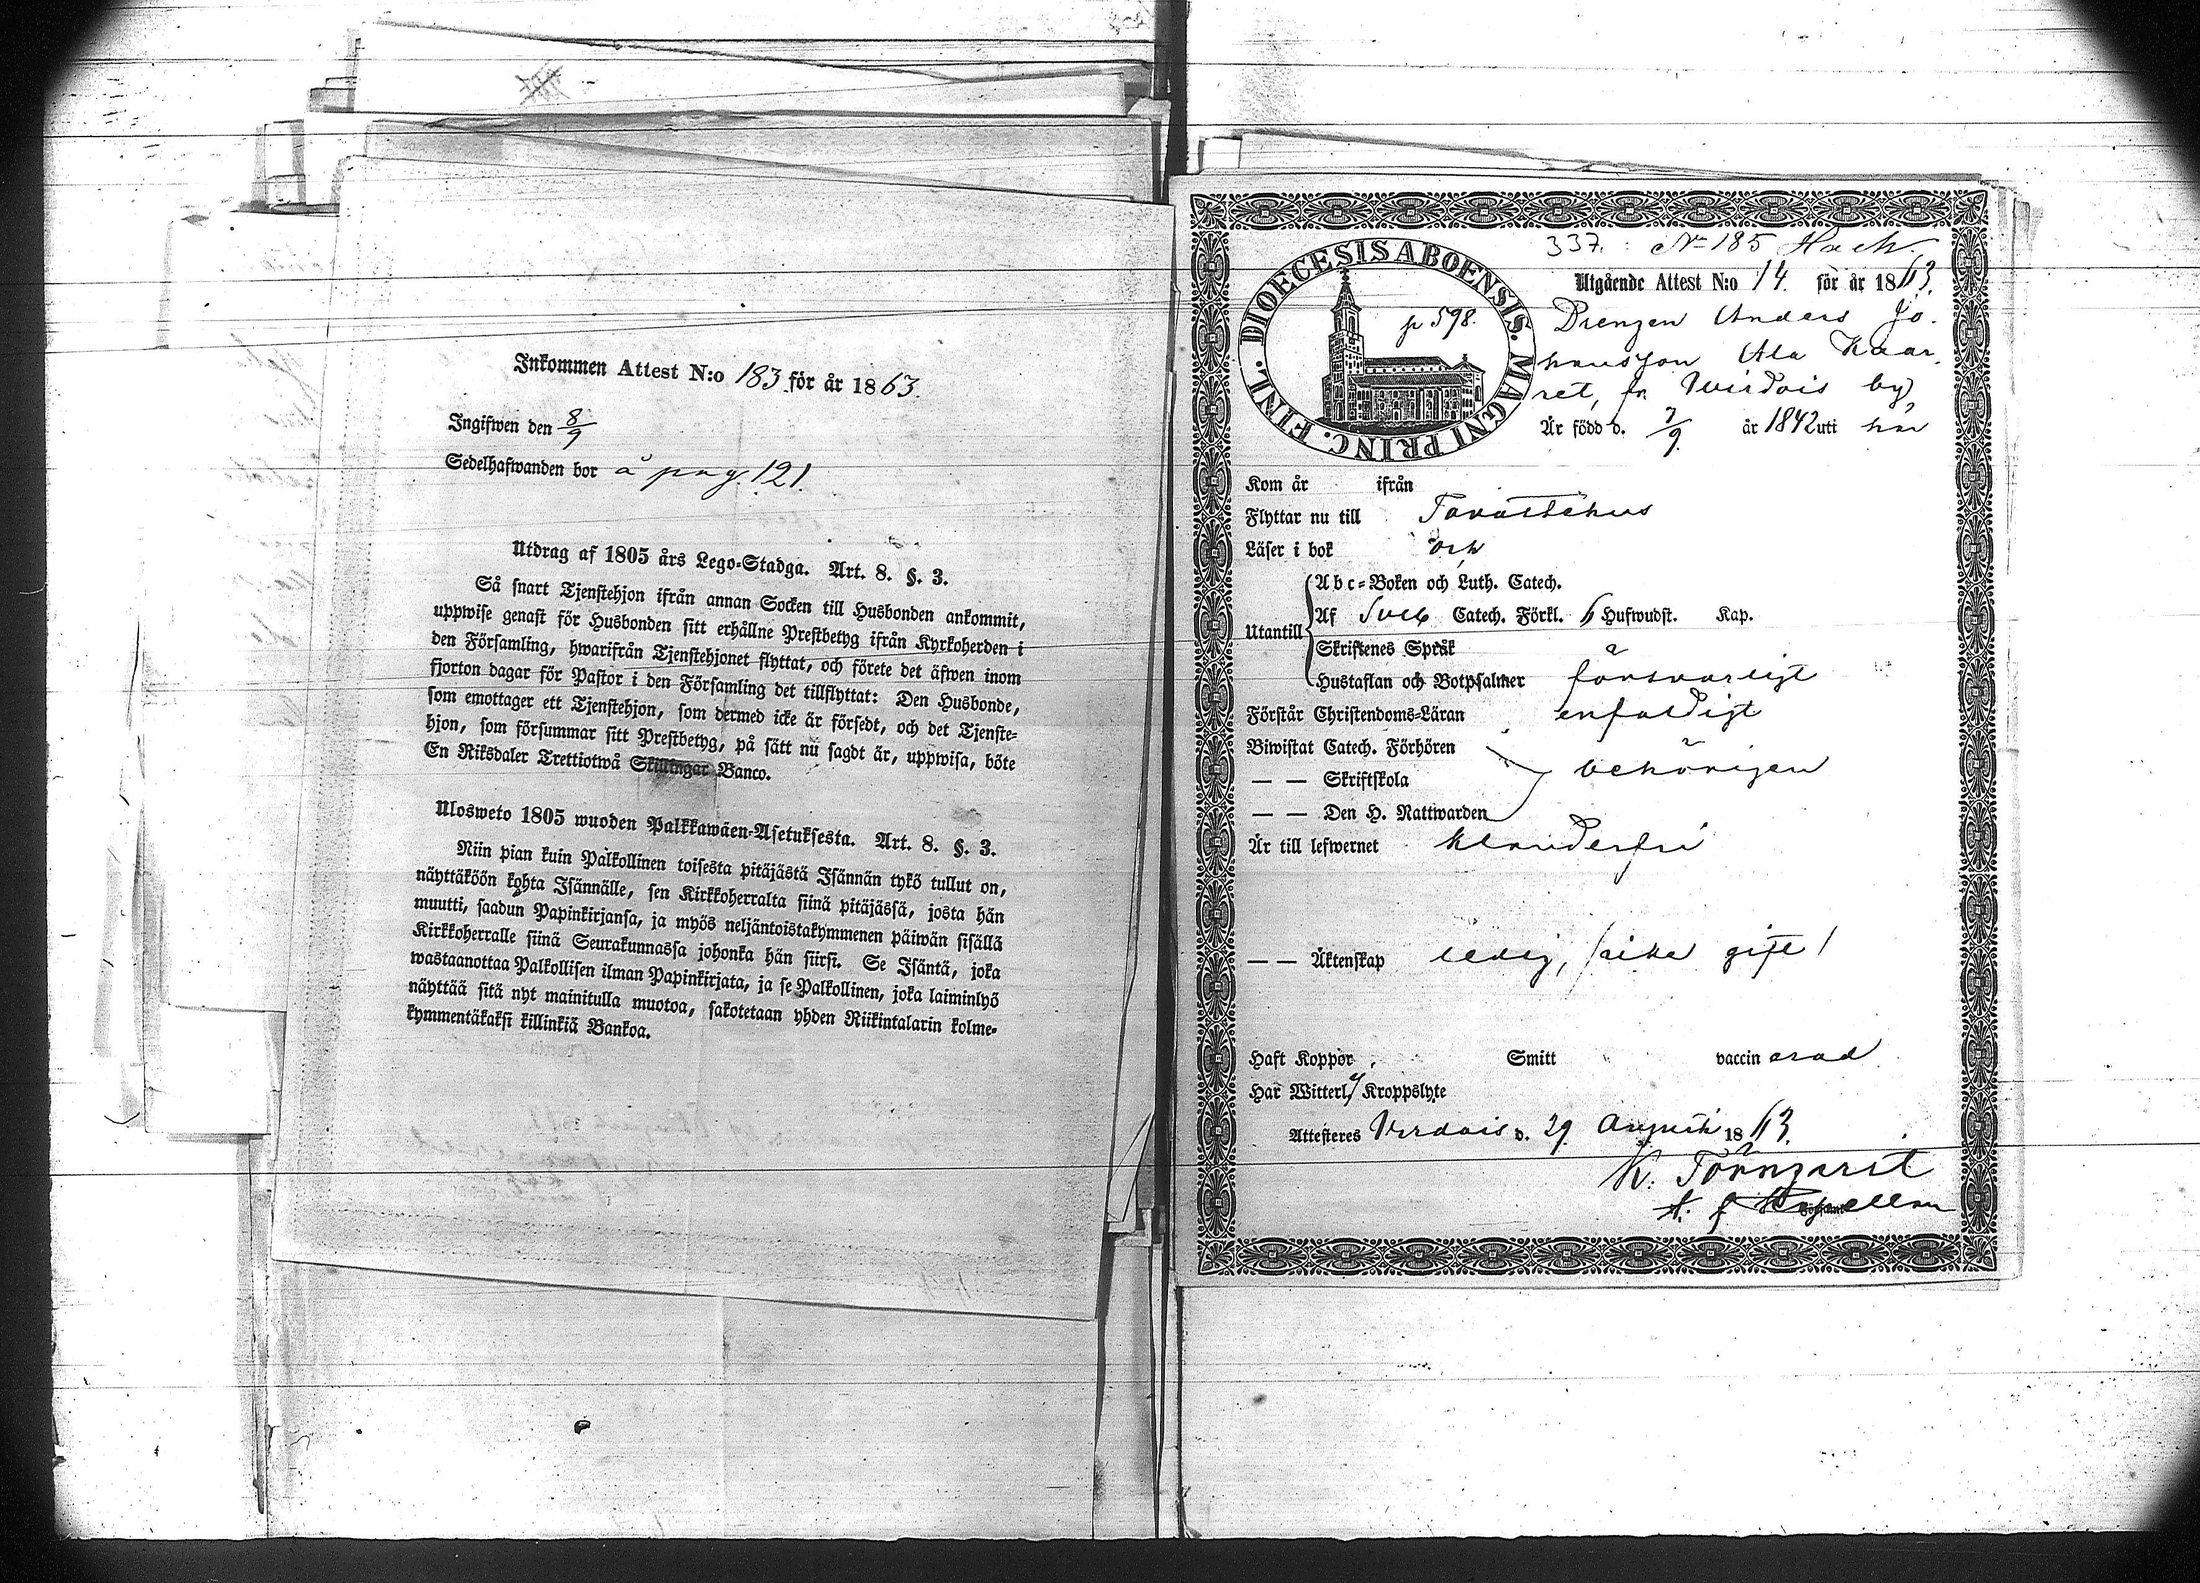 Inkommen Attest N:o 183 för år 1863.
Ingifwen den 8/9
Sedelhafwanden bor å pag. 121.
Utdrag af 1805 års Lego-Stadga. Art. 8. §. 3.
Så snart Tjenstehjon ifrån annan Socken till Husbonden ankommit,
uppwise genast för Husbonden sitt erhållne Prestbetyg ifrån Kyrkoherden i
den Församling, hwarifrån Tjenstehjonet flyttat, och förete det äfwen inom
fjorton dagar för Pastor i den Församling det tillflyttat: Den Husbonde,
som emottager ett Tjenstehjon, som dermed icke är försedt, och det Tjenste-
hjon, som försummar sitt Prestbetyg, på sätt nu sagdt är, uppwisa, böte
En Riksdaler Trettiotwå Skillingar Banco.
Ulosweto 1805 wuoden Palkkawäen-Asetuksesta. Art. 8. §. 3.
Niin pian kuin Palkollinen toisesta pitäjästä Isännän tykö tullut on,
näyttäköön kohta Isännälle, sen Kirkkoherralta siinä pitäjässä, josta hän
muutti, saadun Papinkirjansa, ja myös neljäntoistakymmenen päiwän sisällä
Kirkkoherralle siinä Seurakunnassa johonka hän siirsi. Se Isäntä, joka
wastaanottaa Palkollisen ilman Papinkirjata, ja se Palkollinen, joka laiminlyö
näyttää sitä nyt mainitulla muotoa, sakotetaan yhden Riikintalarin kolme-
kymmentäkaksi killinkiä Bankoa.
337. N 185
Utgående Attest N:o 14. för år 1863.
DIOECESIS ABOENSIS. MAGNI PRINC. FINL.
p 598.
Drengen Anders Jo-
hansson Ala Kaar-
ret, fr Wirdois by,
Är född d. 7/9 år 1842 uti här
Kom år ifrån
Flyttar nu till Tavastehus
Läser i bok och
Abc-Boken och Luth. Catech.
Utantill Af Sveb Catech. Förkl. 6 Hufwudst. Kap.
Skriftenes Språk
Hustaflan och Botpsalmer försvarligt
Förstår Christendoms-Läran enfaldigt
Biwistat Catech. Förhören
— — Skriftskola behörigen
— — Den H. Nattwarden
Är till lefwernet klanderfri
— — Äktenskap ledig, /icke gift/
Haft Koppor Smitt vaccinerad
Har Witterl. Kroppslyte
Attesteres Virdois d. 29 Augusti 1863.
K. Törnqvist